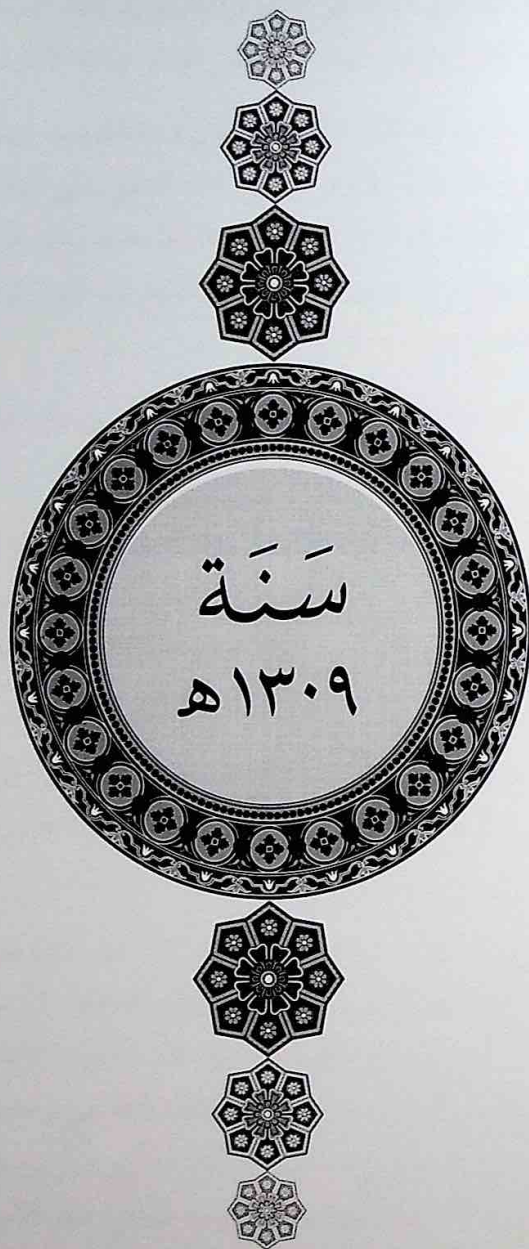 سَنَة
١٣٠٩هـ